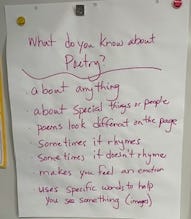 What do you know about
Poetry?
· about anything
· about special things or people
· poems look different on the page
· Sometimes it rhymes
· Sometimes it doesn't rhyme
· makes you feel an emotion
· uses specific words to help
you see something (images)